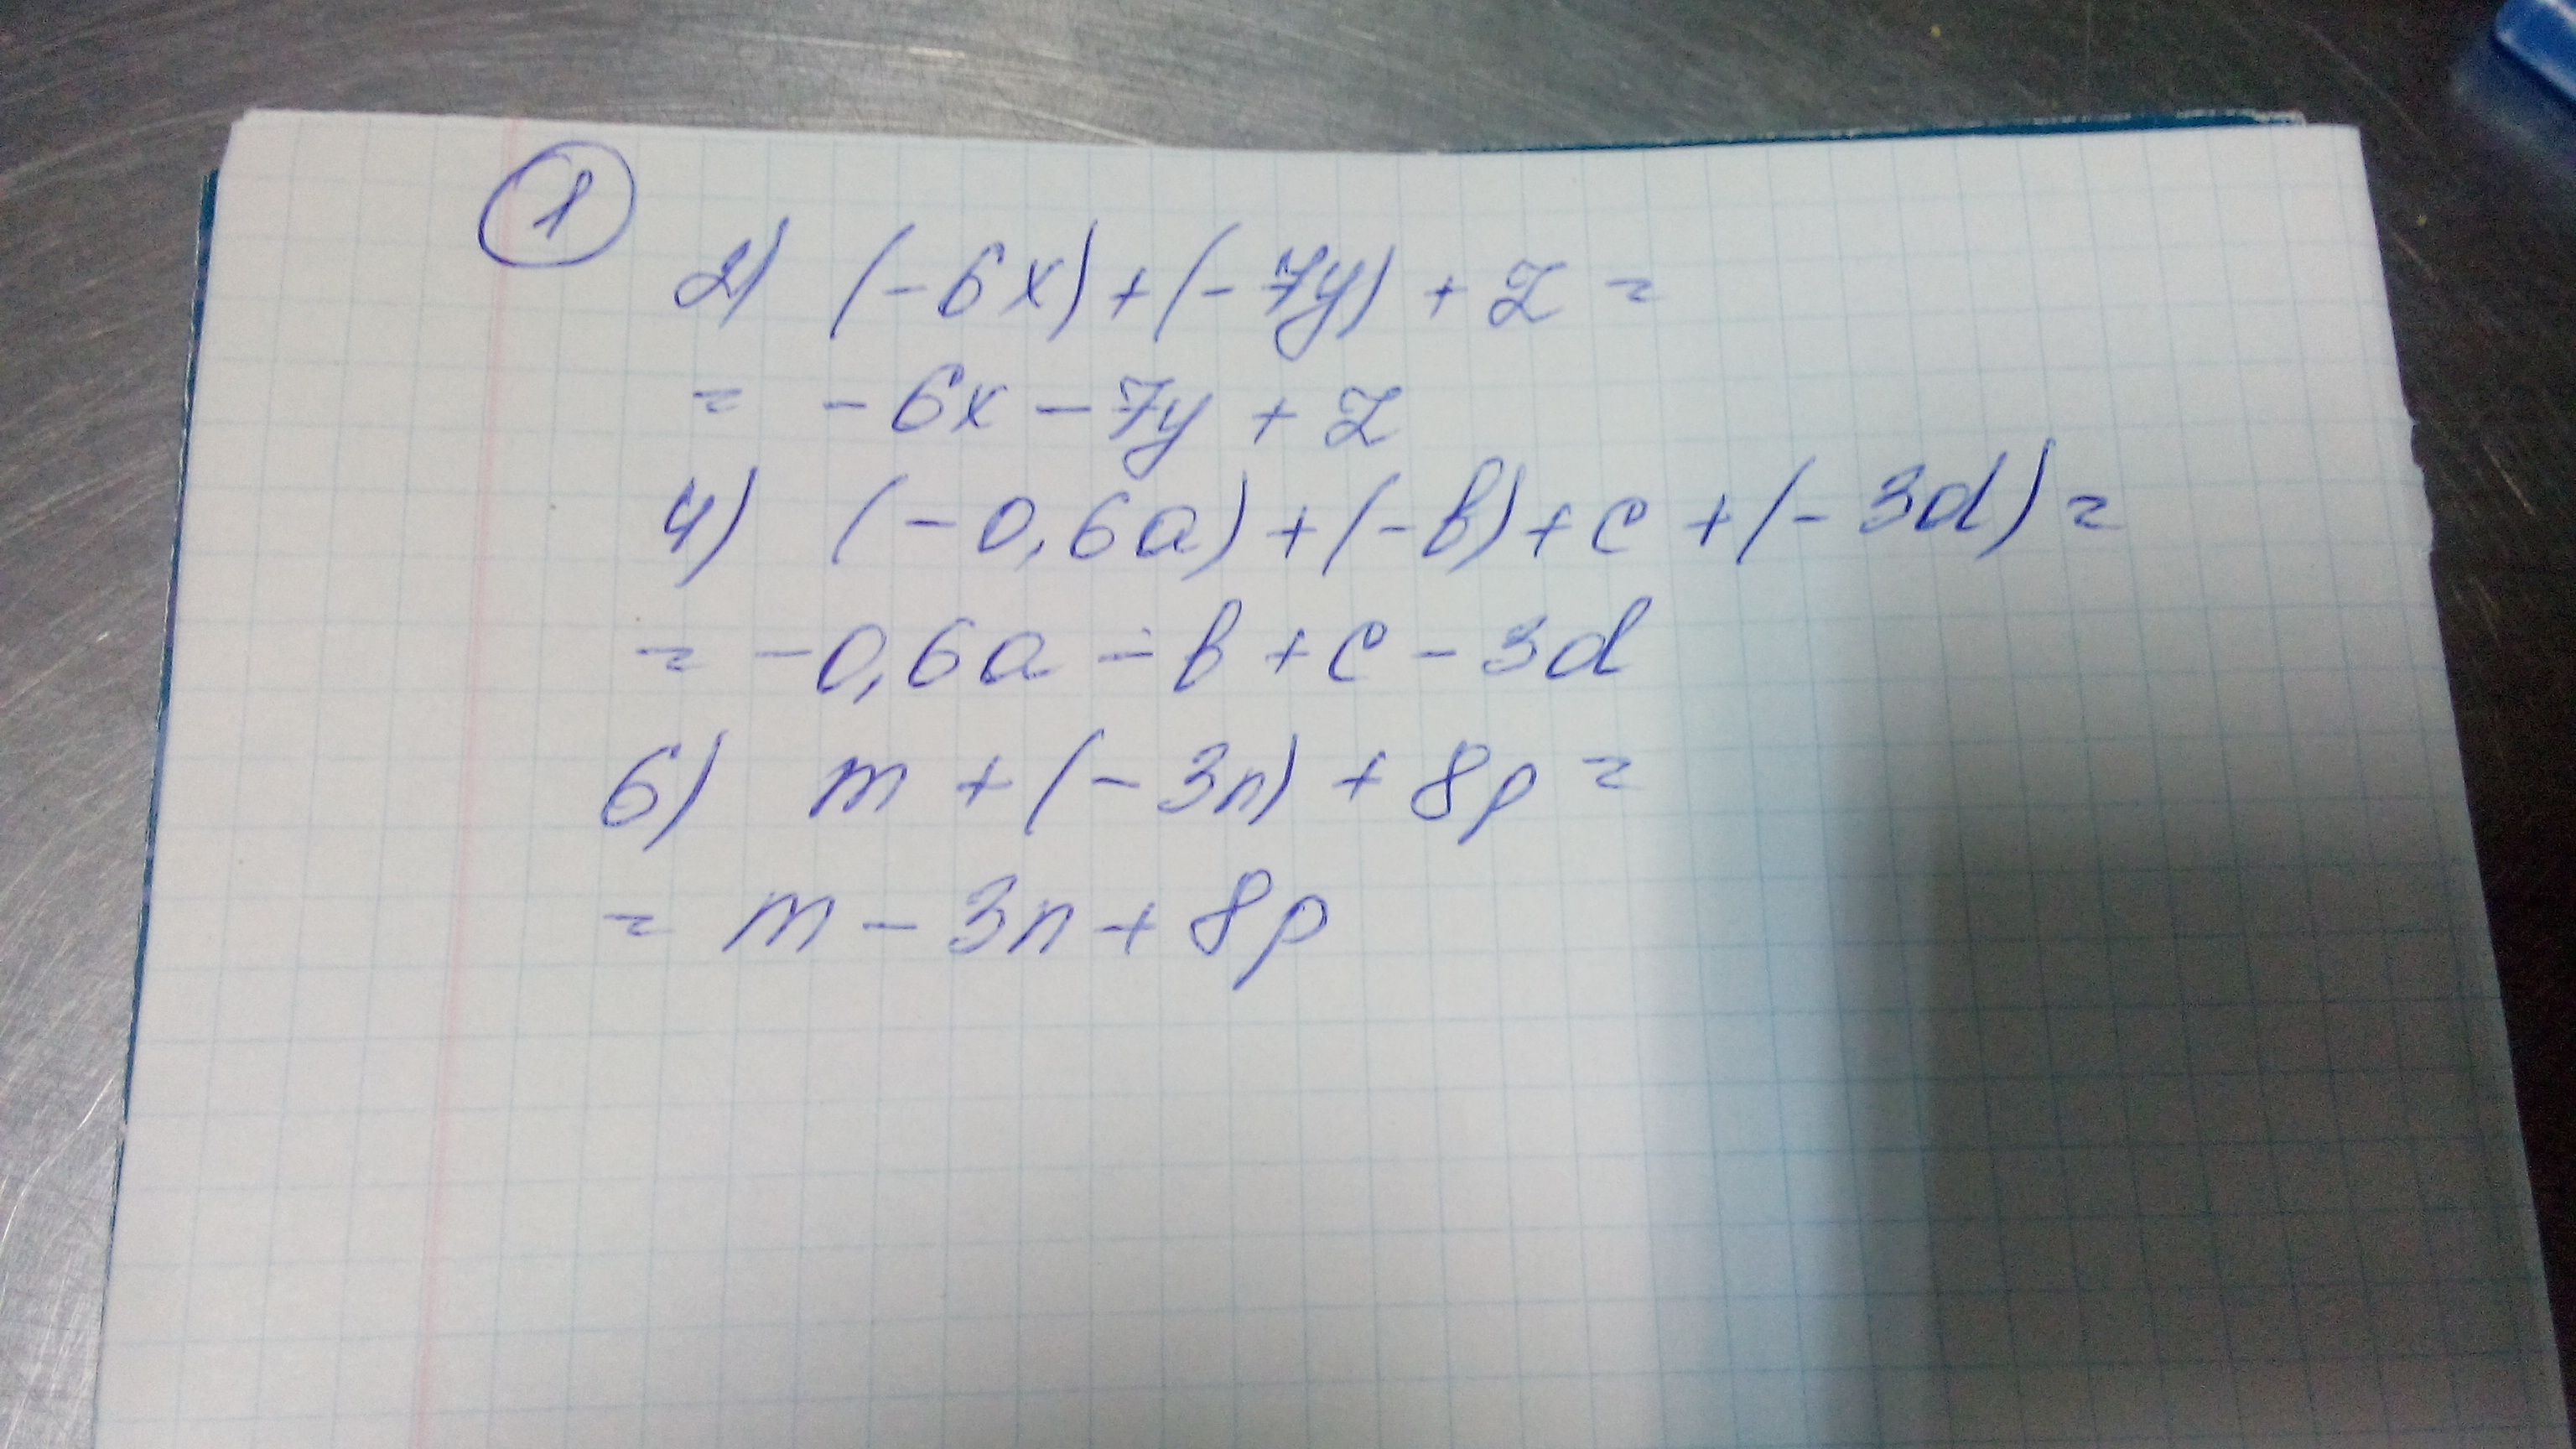 1
2) (-6x)+(-7y)+z=
= -6x-7y+z
4) (-0,6a)+(-b)+c+(-3d)=
= -0,6a-b+c-3d
6) m+(-3n)+8p=
= m-3n+8p